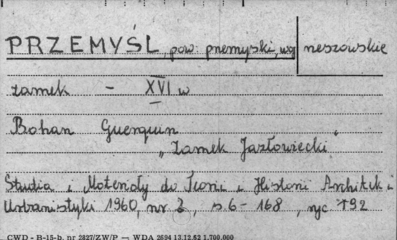 PRZEMYŚL, pow. przemyski, woj rzeszowskie
zamek - XVI w
Bohan Guerquin
"Zamek Jazłowiecki"
Studia i Materiały do Teorii i Historii Architek i
Urbanistyki 1960, nr 2, s. 6-168, ryc 192
CWD - B-15-b. nr 2827/ZW/P — WDA 2694 13.12.62 1.700.000